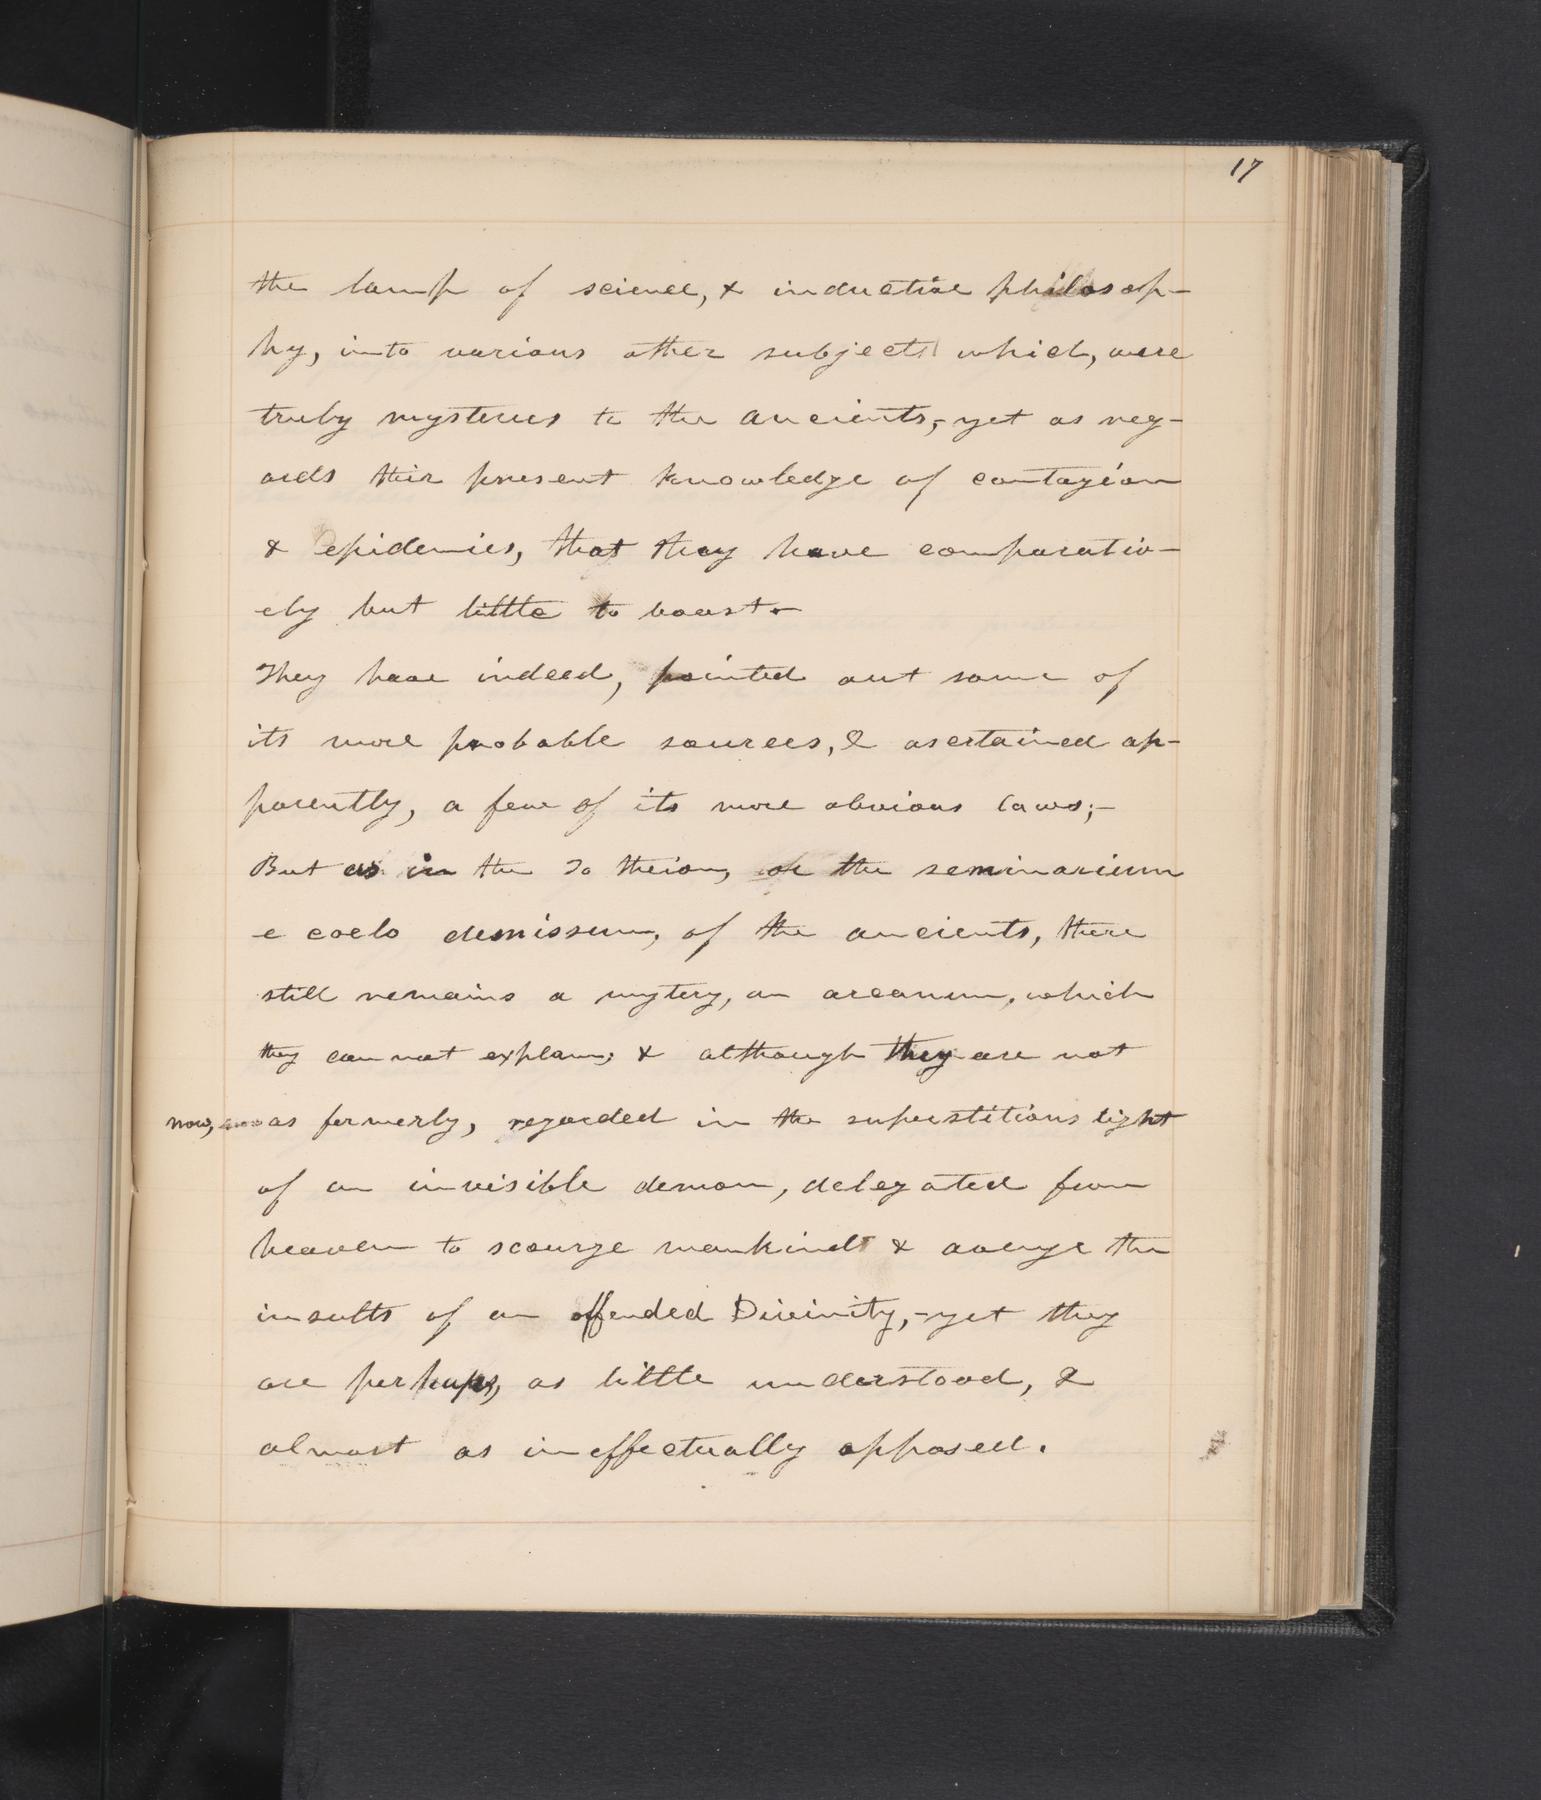 17
the lamp of science, & inductive philosop-
hy, into various other subjects which, were
truly mysteries to the ancients,- yet as reg-
ards their present knowledge of contagion
& epidemics, that they have comparativ-
ely but little to boast.-
They have indeed, pointed out some of
its more probable sources, & asertained ap-
parently, a few of its more obvious laws;-
But as in the To theion, or the seminarium
e coelo demissum, of the ancients, there
still remains a mytery, an arcanum, which
they can not explain; & although they are not
now, as formerly, regarded in the superstitious light
of an invisible demon, delegated from
heaven to scourge mankind & avenge the
insults of an offended Divinity,- yet they
are perhaps, as little understood, &
almost as ineffectually opposed.